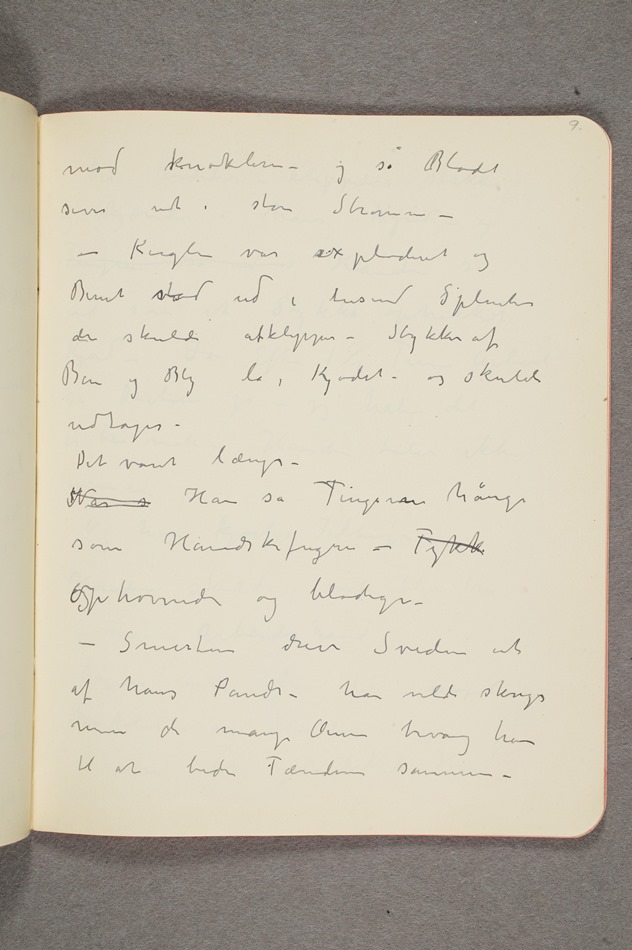 9.
mod knoklerne – og så Blodt
sives ut i store Strømme –
– Kuglen var explodert og
Benet stod ud i tusind Splinter
der skulde afklippes – Stykker af
Ben og Bly lå i Kjødet – og skulde
udtages –
Det varet længe –
Han så Fingrene hänge
som Handskefingre – Tykk
Ophovnede og blodige –
– Smerten drev Sveden ut
af hans Pande – han vilde skrige
men de mange Øine tvang ham
til at bide Tænderne sammen –